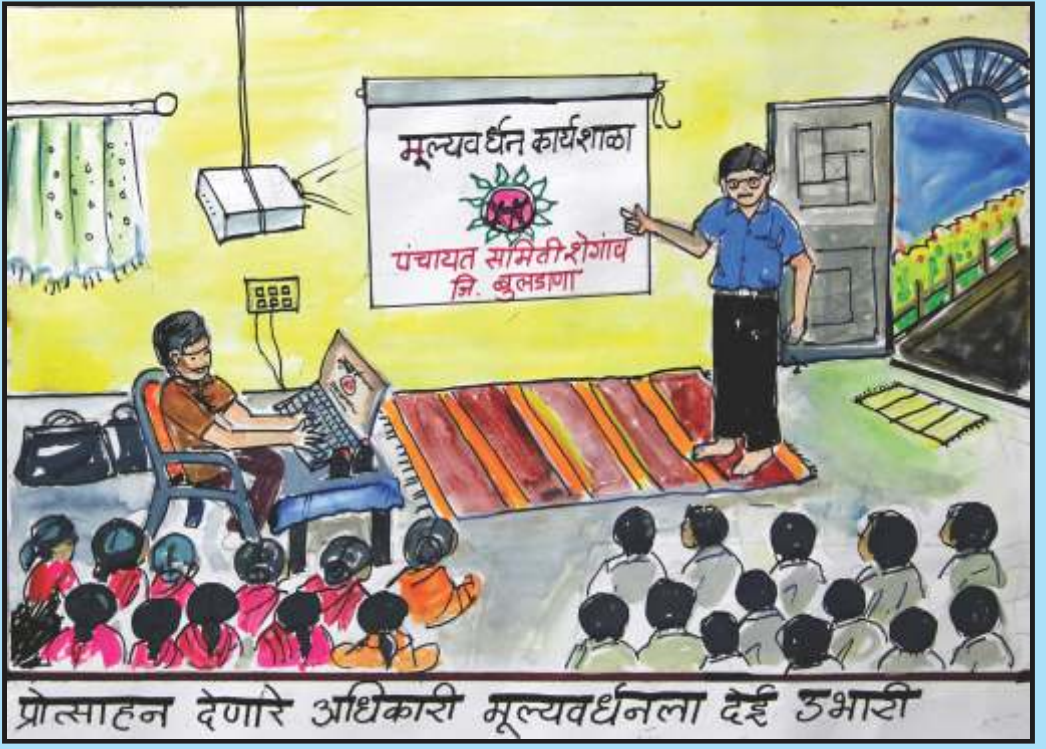 मूल्यवर्धन कार्यशाळा
पंचायत समिती शेगांव
जि. बुलडाणा
प्रोत्साहन देणारे अधिकारी मूल्यवर्धनला देई उभारी